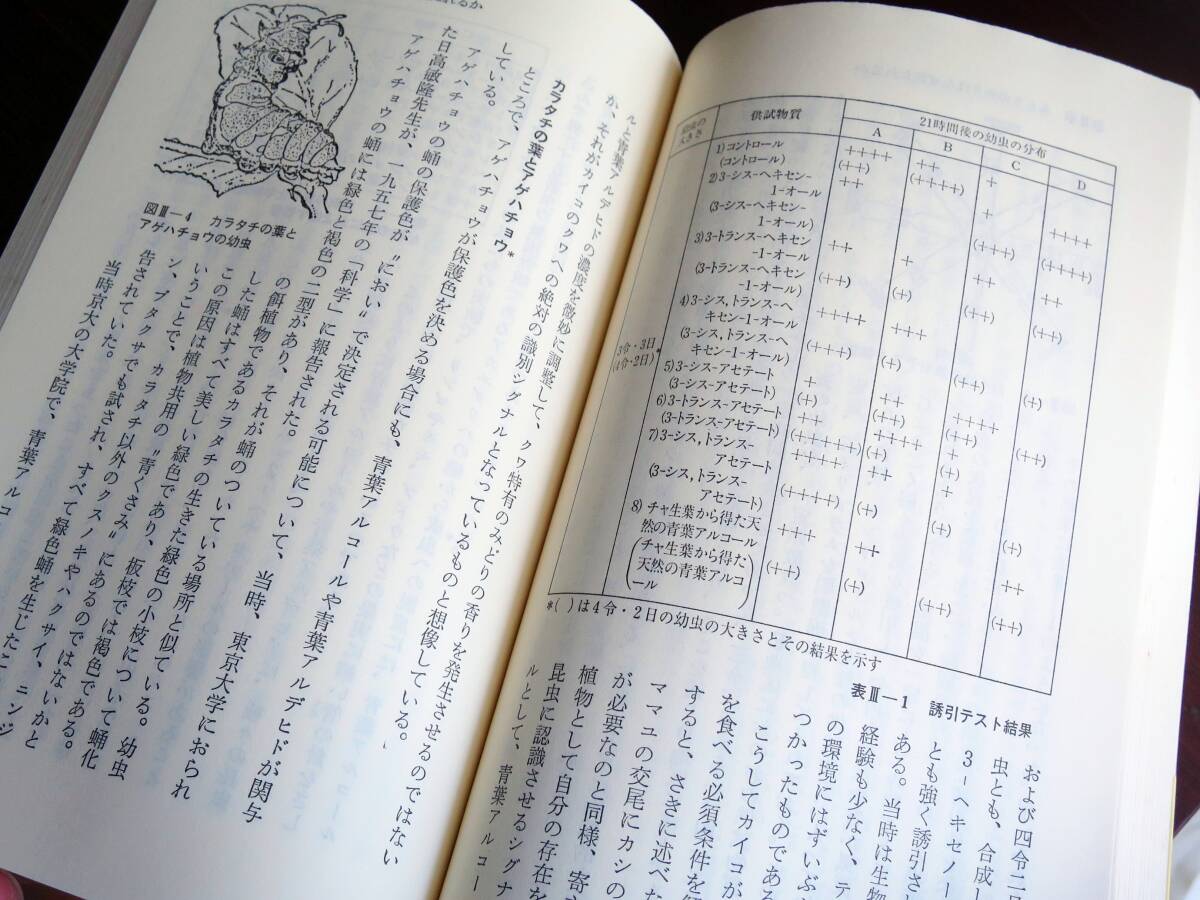 幼虫の
大きさ
供試物質
21時間後の幼虫の分布
A
B
C
D
3令・3日
(4令・2日)*
1)コントロール
(コントロール)
2)3-シス-ヘキセン-
1-オール
(3-シス-ヘキセン-
1-オール)
3)3-トランス-ヘキセン
-1-オール
(3-トランス-ヘキセン
-1-オール)
4)3-シス,トランス-ヘ
キセン-1-オール
(3-シス,トランス-ヘ
キセン-1-オール)
5)3-シス-アセテート
(3-シス-アセテート)
6)3-トランス-アセテート
(3-トランス-アセテート)
7)3-シス,トランス-
アセテート
(3-シス,トランス-
アセテート)
8)チャ生葉から得た天
然の青葉アルコール
(チャ生葉から得た
天然の青葉アルコ
ール)
++++
(++)
++
++
(++)
++++
(+++)
+
(+)
++
(+++++)
++++
(++++)
+++
(++)
++
(++++)
+
(+)
+++
(+)
++
(++)
++++
++
(+)
++
(+)
+
+
(+++)
++
(++)
(++)
++
(++)
+
(+)
+
(+)
(++)
++++
(++++)
++
(++)
(+)
(++)
(+)
++
(++)
*( )は4令・2日の幼虫の大きさとその結果を示す
表Ⅲ—1 誘引テスト結果
および四令二日
虫とも、合成し
3-ヘキセノー
とも強く誘引さ
ある。当時は生物
経験も少なく、テ
の環境にはずいぶ
つかったものである
こうしてカイコが
を食べる必須条件を
すると、さきに述べた
ママユの交尾にカシの
が必要なのと同様、寄
植物として自分の存在を
昆虫に認識させるシグナ
ルとして、青葉アルコー
ルと青葉アルデヒドの濃度を微妙に調整して、クワ特有のみどりの香りを発生させるのではない
か、それがカイコのクワへの絶対の識別シグナルとなっているものと想像している。
カラタチの葉とアゲハチョウ*
ところで、アゲハチョウが保護色を決める場合にも、青葉アルコールや青葉アルデヒドが関与
している。
アゲハチョウの蛹の保護色が〝におい〟で決定される可能について、当時、東京大学におられ
た日高敏隆先生が、一九五七年の「科学」に報告された。
アゲハチョウの蛹には緑色と褐色の二型があり、それが蛹のついている場所と似ている。幼虫
の餌植物であるカラタチの生きた緑色の小枝について蛹化
した蛹はすべて美しい緑色であり、板枝では褐色である。
この原因は植物共用の〝青くさみ〟にあるのではないかと
いうことで、カラタチ以外のクスノキやハクサイ、ニンジ
ン、ブタクサでも試され、すべて緑色蛹を生じたこ
告されていた。
当時京大の大学院で、青葉アルコ
図Ⅲ—4 カラタチの葉と
アゲハチョウの幼虫
れるか